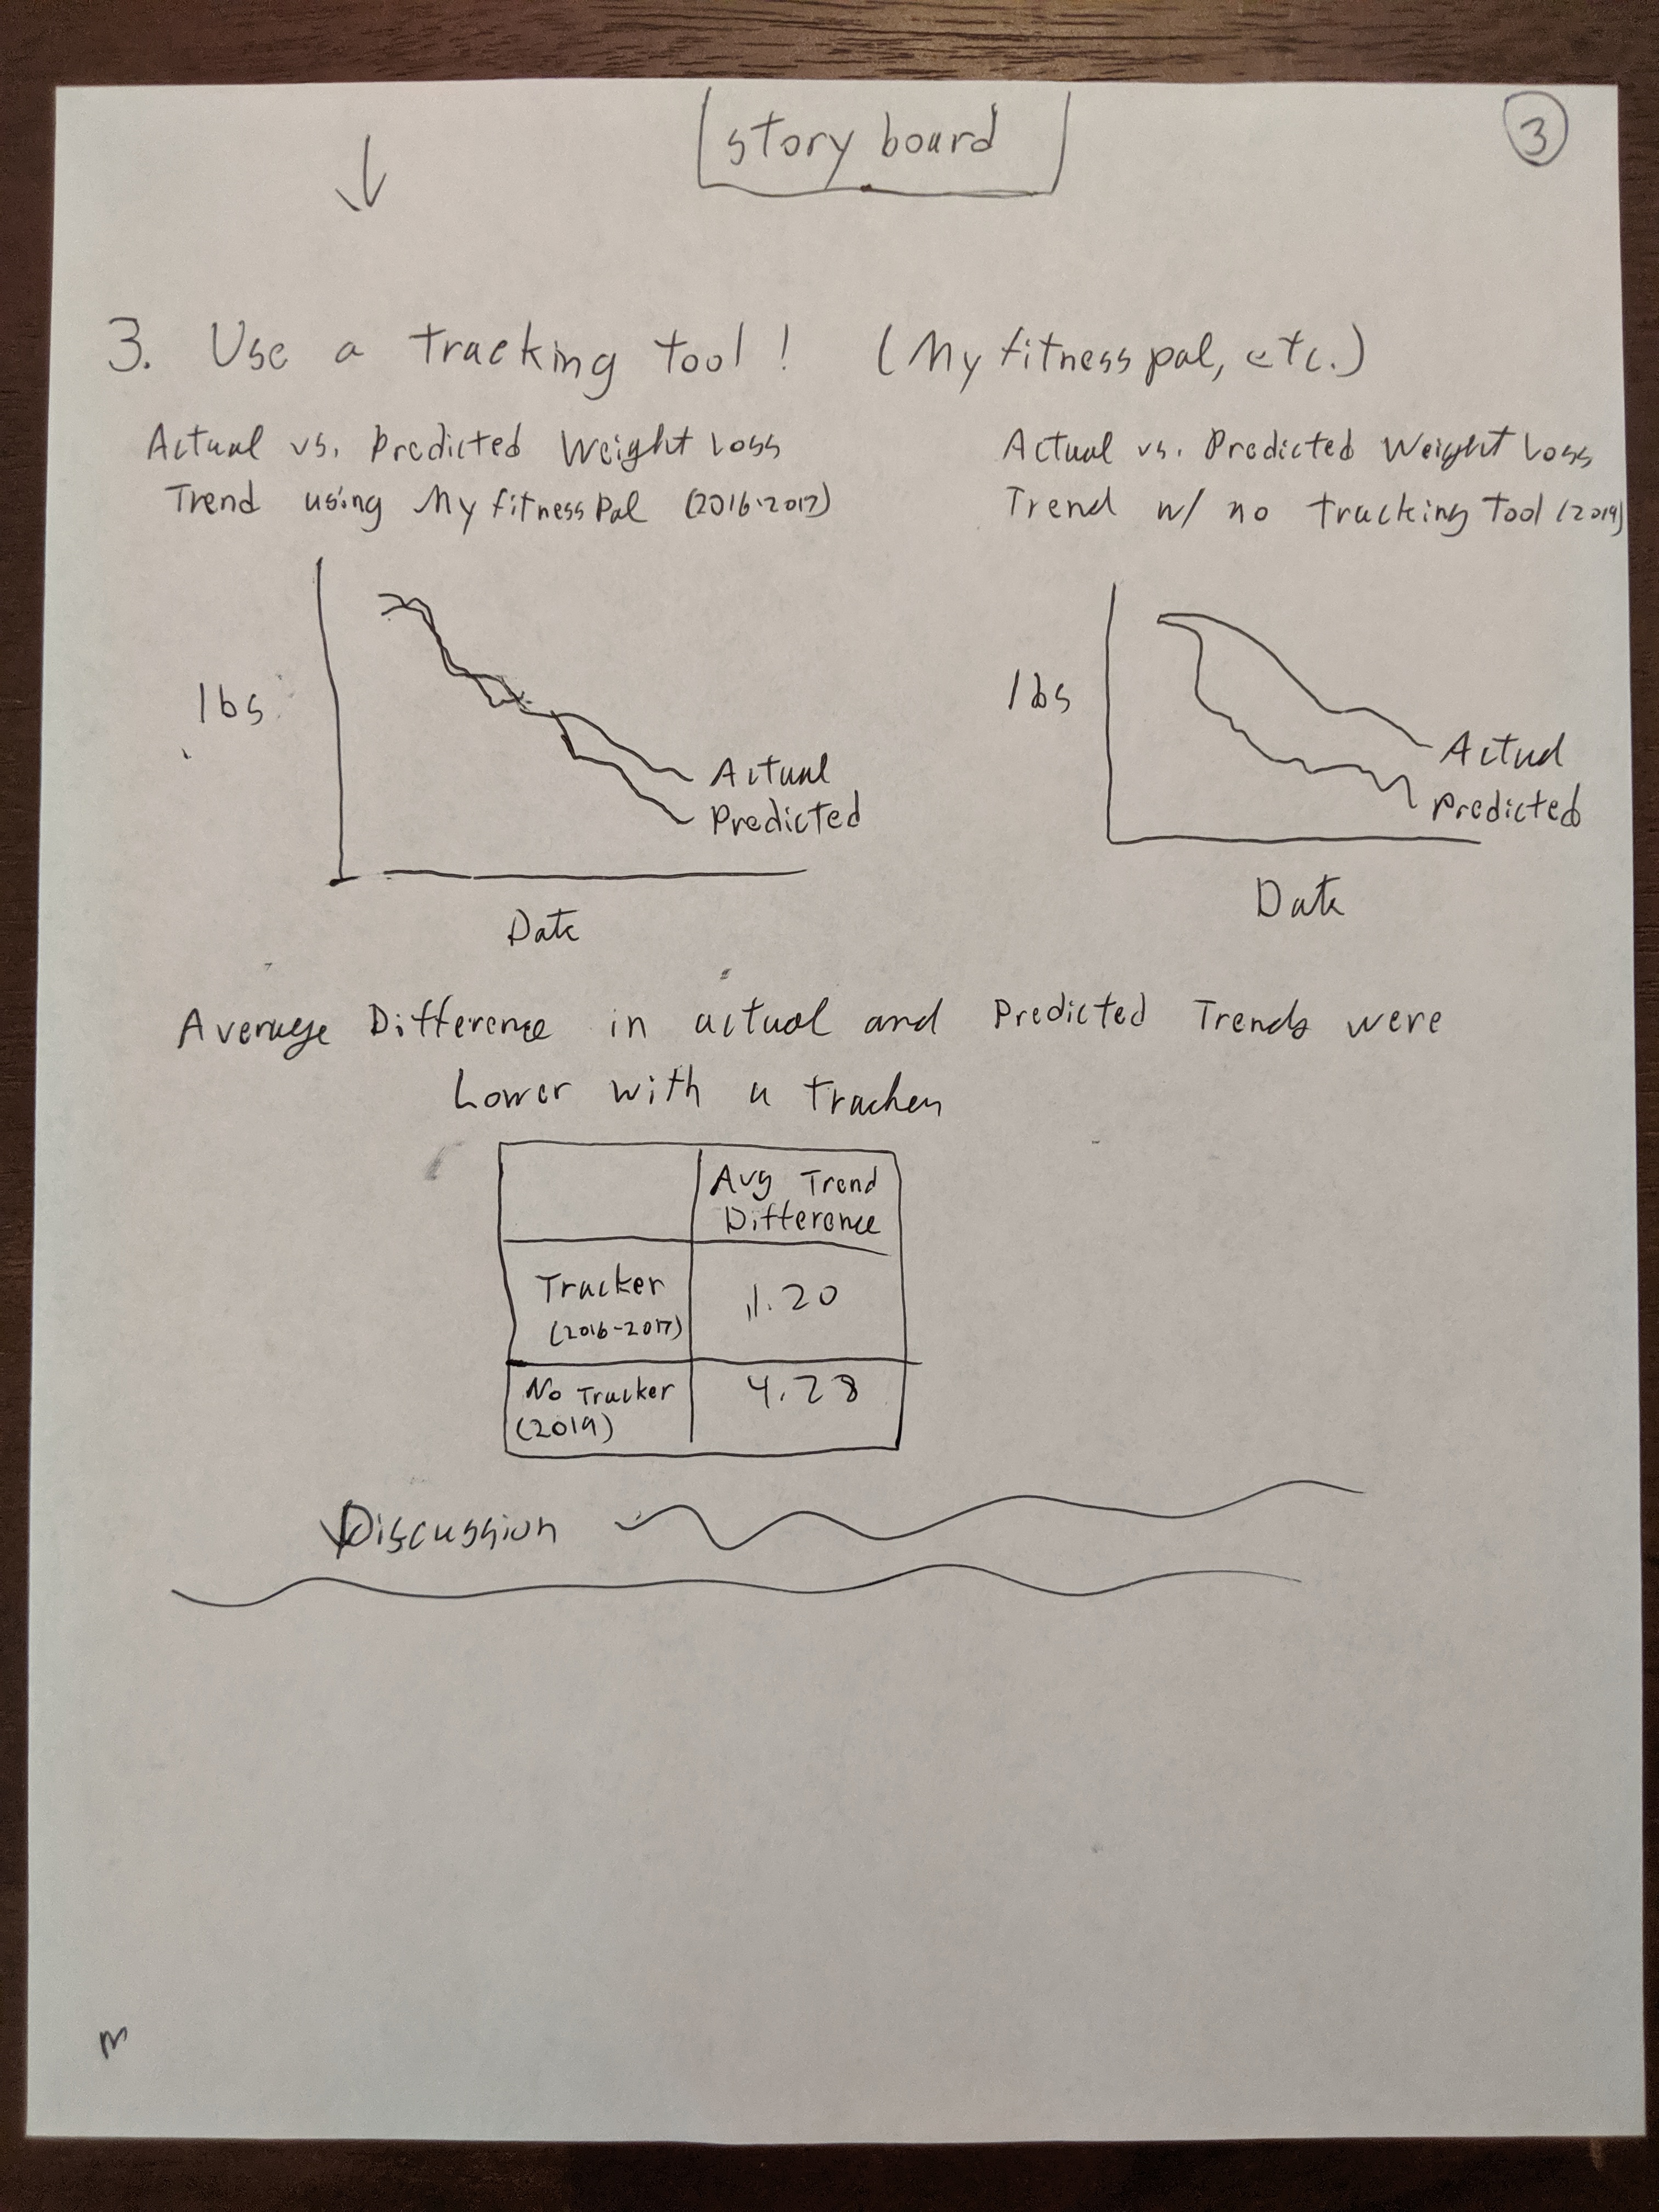 story board
3
3. Use a tracking tool! (My fitness pal, etc.)
Actual vs. Predicted Weight Loss
Trend using My fitness Pal (2016-2017)
Actual vs. Predicted Weight Loss
Trend w/ no tracking Tool (2019)
lbs
Actual
Predicted
Date
lbs
Actual
Predicted
Date
Average Difference in actual and Predicted Trends were
Lower with a tracker
Avg Trend
Difference
Tracker
(2016-2017)
1.20
No Tracker
(2019)
4.28
Discussion